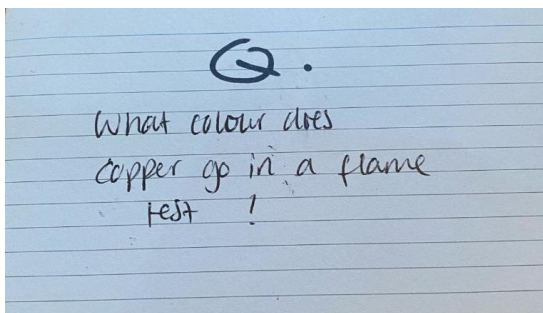 Q.
What colour does
copper go in a flame
test !